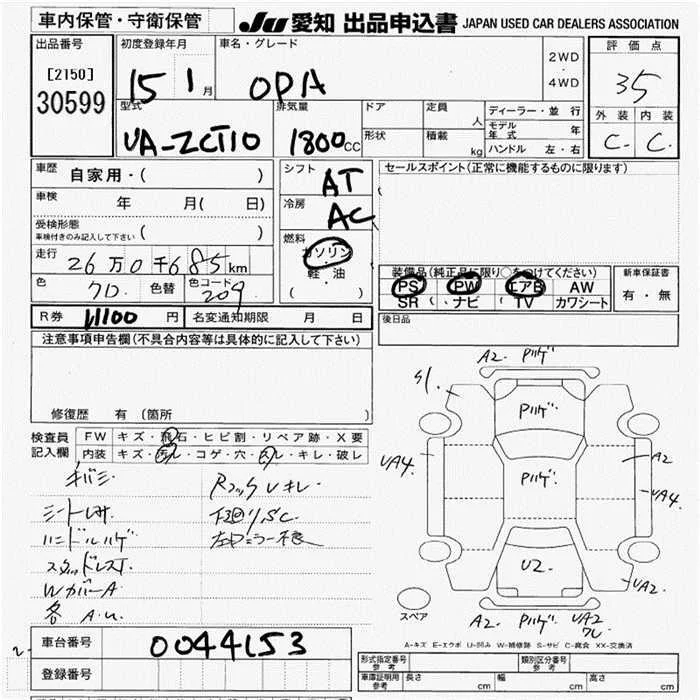 車内保管・守衛保管
JU 愛知 出品申込書 JAPAN USED CAR DEALERS ASSOCIATION
出品番号
[2150]
30599
初度登録年月
15 1 月
車名・グレード
OPA
2WD
・
4WD
評価点
35
外装 内装
C- C-
型式
UA-ZCT10
排気量
1800cc
ドア
形状
定員 人
積載 kg
ディーラー・並行
モデル年式 年
ハンドル 左・右
車歴
自家用・( )
車検
年 月( 日)
受検形態
車検付きのみ記入して下さい ( )
走行
26万0千685km
色
クロ
色替
色コード
209
シフト
AT
冷房
AC
燃料
ガソリン
軽・油
( )
セールスポイント(正常に機能するものに限ります)
装備品(純正品に限り○をつけてください)
PS PW エアB AW
SR ( ナビ ) TV カワシート
新車保証書
有・無
R券 11100 円
名変通知期限 月 日
後日品
注意事項申告欄(不具合内容等は具体的に記入して下さい)
修復歴 有 (箇所 )
検査員
記入欄
FW キズ・飛石・ヒビ割・リペア跡・X要
内装 キズ・汚レ・コゲ・穴・スレ・キレ・破レ
キバミ
シートレサ
ハンドルハゲ
WカバーA
各 A.U.
下廻りS.C
左ドミラー不良
A2- Pハゲ
S1.
Pハゲ
UA4.
A2
Pハゲ
UA4.
U2-
UA2-
スペア
A2- Pハゲ UA2
A-キズ E-エクボ U-凹み W-補修跡 S-サビ C-腐食 XX-交換済
車台番号
0044153
登録番号
形式指定番号
参考
類別区分番号
参考
車庫証明用
参考
長さ cm
幅 cm
高さ cm